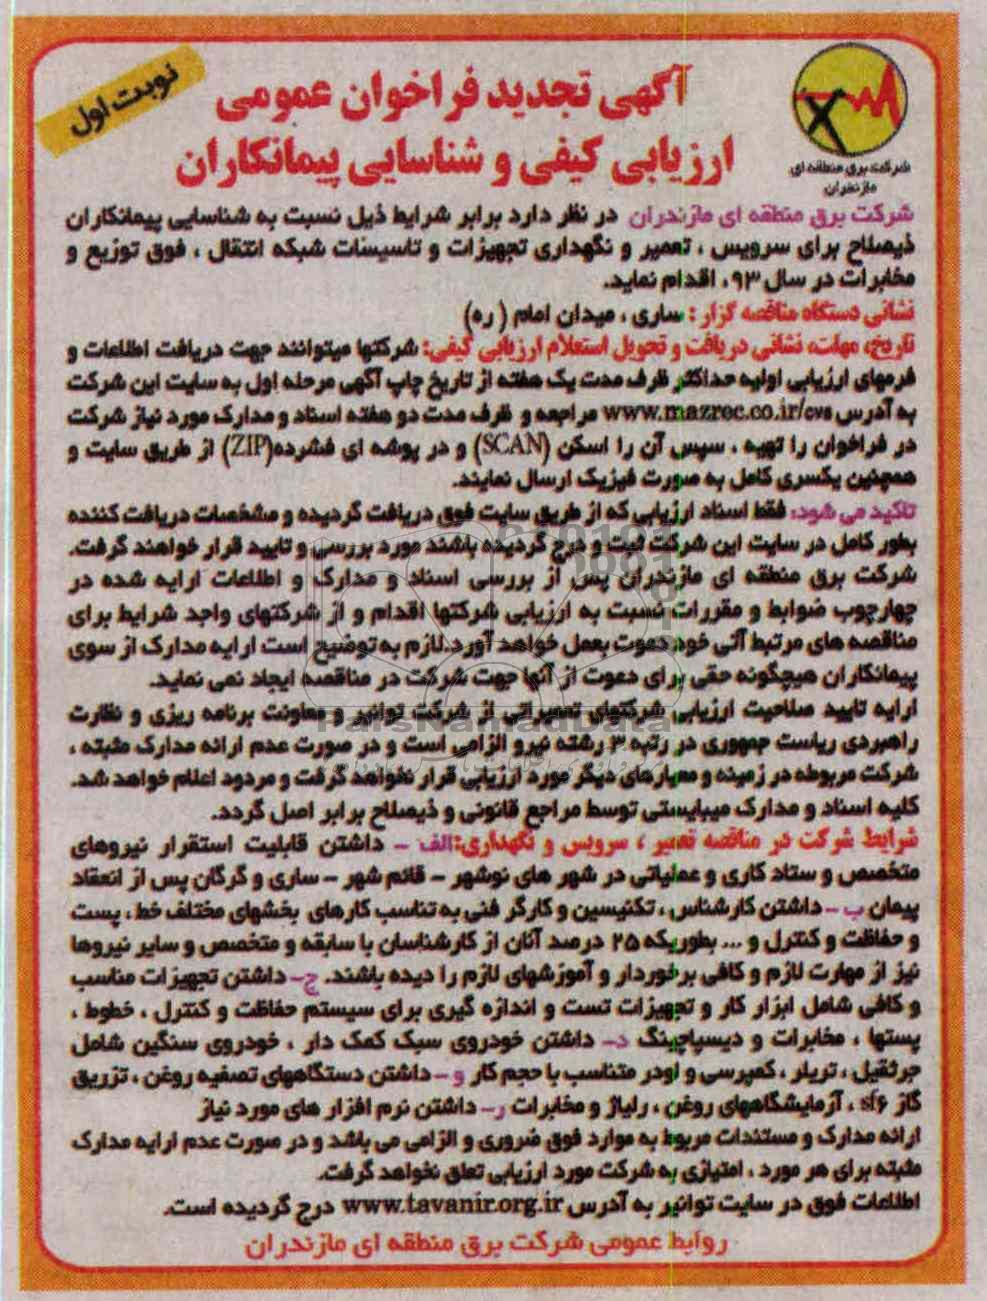 نوبت اول
آگهی تجدید فراخوان عمومی
ارزیابی کیفی و شناسایی پیمانکاران
شرکت برق منطقه ای
مازندران
شرکت برق منطقه ای مازندران در نظر دارد برابر شرایط ذیل نسبت به شناسایی پیمانکاران
ذیصلاح برای سرویس ، تعمیر و نگهداری تجهیزات و تاسیسات شبکه انتقال ، فوق توزیع و
مخابرات در سال ۹۳، اقدام نماید.
نشانی دستگاه مناقصه گزار : ساری ، میدان امام ( ره)
تاریخ، مهلت، نشانی دریافت و تحویل استعلام ارزیابی کیفی: شرکتها میتوانند جهت دریافت اطلاعات و
فرمهای ارزیابی اولیه حداکثر ظرف مدت یک هفته از تاریخ چاپ آگهی مرحله اول به سایت این شرکت
به آدرس www.mazrec.co.ir/cvs مراجعه و ظرف مدت دو هفته اسناد و مدارک مورد نیاز شرکت
در فراخوان را تهیه ، سپس آن را اسکن (SCAN) و در پوشه ای فشرده(ZIP) از طریق سایت و
همچنین یکسری کامل به صورت فیزیک ارسال نمایند.
تاکید می شود: فقط اسناد ارزیابی که از طریق سایت فوق دریافت گردیده و مشخصات دریافت کننده
بطور کامل در سایت این شرکت ثبت و درج گردیده باشند مورد بررسی و تایید قرار خواهند گرفت.
شرکت برق منطقه ای مازندران پس از بررسی اسناد و مدارک و اطلاعات ارایه شده در
چهارچوب ضوابط و مقررات نسبت به ارزیابی شرکتها اقدام و از شرکتهای واجد شرایط برای
مناقصه های مرتبط آتی خود دعوت بعمل خواهد آورد.لازم به توضیح است ارایه مدارک از سوی
پیمانکاران هیچگونه حقی برای دعوت از آنها جهت شرکت در مناقصه ایجاد نمی نماید.
ارایه تایید صلاحیت ارزیابی شرکتهای تعمیراتی از شرکت توانیر و معاونت برنامه ریزی و نظارت
راهبردی ریاست جمهوری در رتبه ۳ رشته نیرو الزامی است و در صورت عدم ارائه مدارک مثبته ،
شرکت مربوطه در زمینه و معیارهای دیگر مورد ارزیابی قرار نخواهد گرفت و مردود اعلام خواهد شد.
کلیه اسناد و مدارک میبایستی توسط مراجع قانونی و ذیصلاح برابر اصل گردد.
شرایط شرکت در مناقصه تعمیر ، سرویس و نگهداری:الف - داشتن قابلیت استقرار نیروهای
متخصص و ستاد کاری و عملیاتی در شهر های نوشهر - قائم شهر - ساری و گرگان پس از انعقاد
پیمان ب - داشتن کارشناس ، تکنیسین و کارگر فنی به تناسب کارهای بخشهای مختلف خط ، پست
و حفاظت و کنترل و ... بطوریکه ۲۵ درصد آنان از کارشناسان با سابقه و متخصص و سایر نیروها
نیز از مهارت لازم و کافی برخوردار و آموزشهای لازم را دیده باشند. ج- داشتن تجهیزات مناسب
و کافی شامل ابزار کار و تجهیزات تست و اندازه گیری برای سیستم حفاظت و کنترل ، خطوط ،
پستها ، مخابرات و دیسپاچینگ د- داشتن خودروی سبک کمک دار ، خودروی سنگین شامل
جرثقیل ، تریلر ، کمپرسی و لودر متناسب با حجم کار و - داشتن دستگاههای تصفیه روغن ، تزریق
گاز sf۶ ، آزمایشگاههای روغن ، رلیاژ و مخابرات ر- داشتن نرم افزار های مورد نیاز
ارائه مدارک و مستندات مربوط به موارد فوق ضروری و الزامی می باشد و در صورت عدم ارایه مدارک
مثبته برای هر مورد ، امتیازی به شرکت مورد ارزیابی تعلق نخواهد گرفت.
اطلاعات فوق در سایت توانیر به آدرس www.tavanir.org.ir درج گردیده است.
روابط عمومی شرکت برق منطقه ای مازندران
ParsNamadData